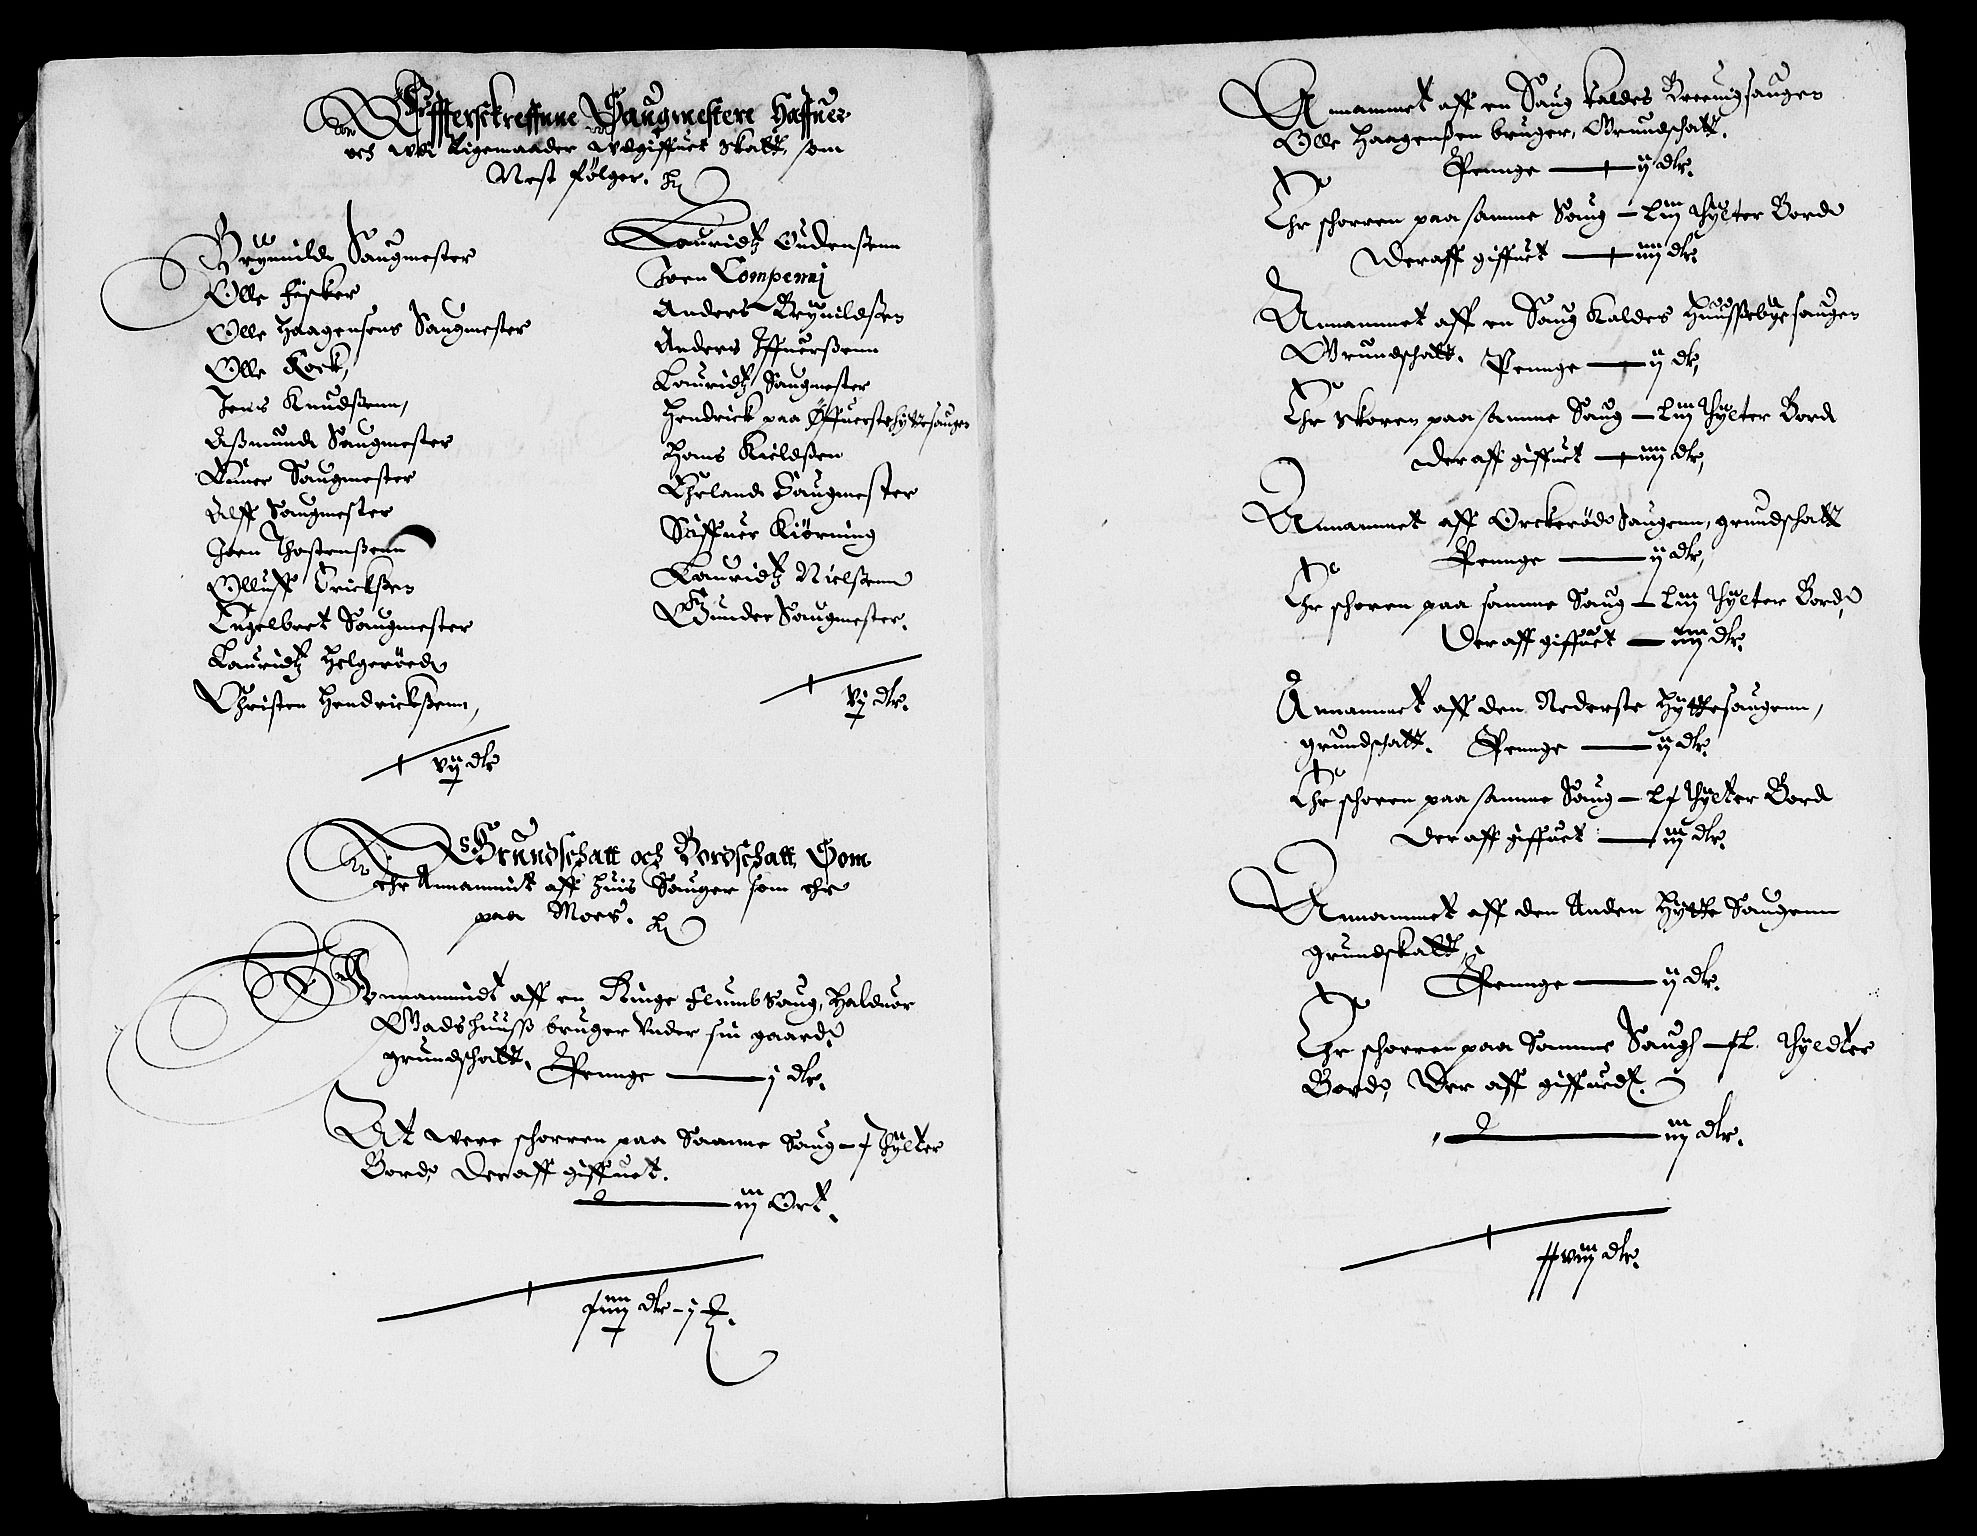 Effterskreffnne Saugmestere Haffuer
och udi ligemaader udgiffuet Skatt, som
Nest følger.
Brynnild Saugmester
Olle Fisker
Olle Haagensens Saugmester
Olle Kock,
Jens Knudßenn,
Aßmund Saugmester
Einer Saugmester
Alff Saugmester
Joen Thostenßenn
Olluff Erickßen
Engelbret Saugmester
Lauridtz Helgeröed
Christen Hendrickßenn,
vij dlr
Lauridtz Oudenßenn
Joen Compenni
Anders Brynildßen
Anders Iffuerßenn
Lauridtz Saugmester
Hendrick paa Öffuerste hyttesaugen
Hans Kieldßen
Erland Saugmester
Siffuer Kiörning
Lauridtz Nielßenn
Gunder Saugmester.
vj dlr.
Grundschatt och Bordschatt Som
ehr Annammit aff huis Sauger som ehr
paa Moes.
Annammidt aff en Ringe flumb Saug, Halduor
Madshuuß bruger under sin gaard,
grundschatt. Pennge — j dlr.
At were schorren paa Samme Saug – x Thylter
Bord, Deraff giffuet.
iij Ort.
xiiij dlr – j
Annammet aff en Saug kaldes Breenigsaugen
Olle Haagenßen bruger, Grundschatt.
Pennge — ij dlr.
Ehr schorren paa samme Saug – Liij Thylter Bord
Deraff giffuet — iiij dlr.
Annammet aff en Saug kaldes Huußebye saugen
Grundschatt. Pennge — ij dlr,
Ehr skoren paa samme Saug – Liij Thylter Bord
Deraff giffuet — iiij dlr,
Annammet aff Orckeröds Saugenn, grundschatt
Pennge — ij dlr,
Ehr schoren paa samme Saug – Liij Thylter Bord,
Deraff giffuet — iiij dlr.
Annammet aff den Nederste Hyttesaugenn,
grundschatt. Pennge — ij dlr.
Ehr schoren paa samme Saug – Lx Thylter Bord
Deraff giffuet — iij dlr.
Annammet aff den Anden Hytte Saugenn
grundskatt,
Pennge — ij dlr.
Ehr schorren paa Samme Saug – xL. Thyldter
Bord, Der aff giffued.
iij dlr.
xxviij dlr.